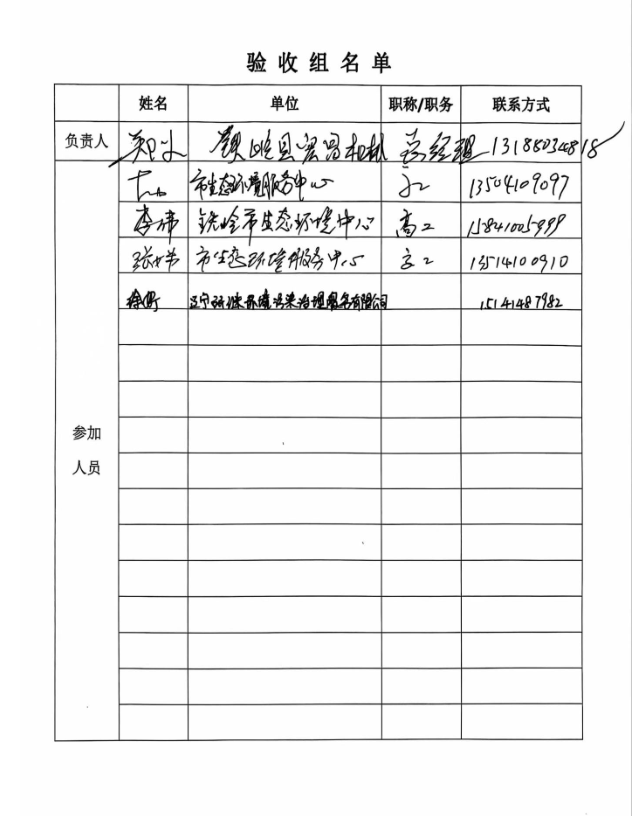 验收组名单
姓名 单位 职称/职务 联系方式
负责人 总经理 13188034818
市生态环境服务中心 高工 13504109097
李伟 铁岭市生态环境中心 高工 15841005999
市生态环境服务中心 高工 13514100910
辽宁 环境污染治理服务有限公司 15141487982
参加
人员